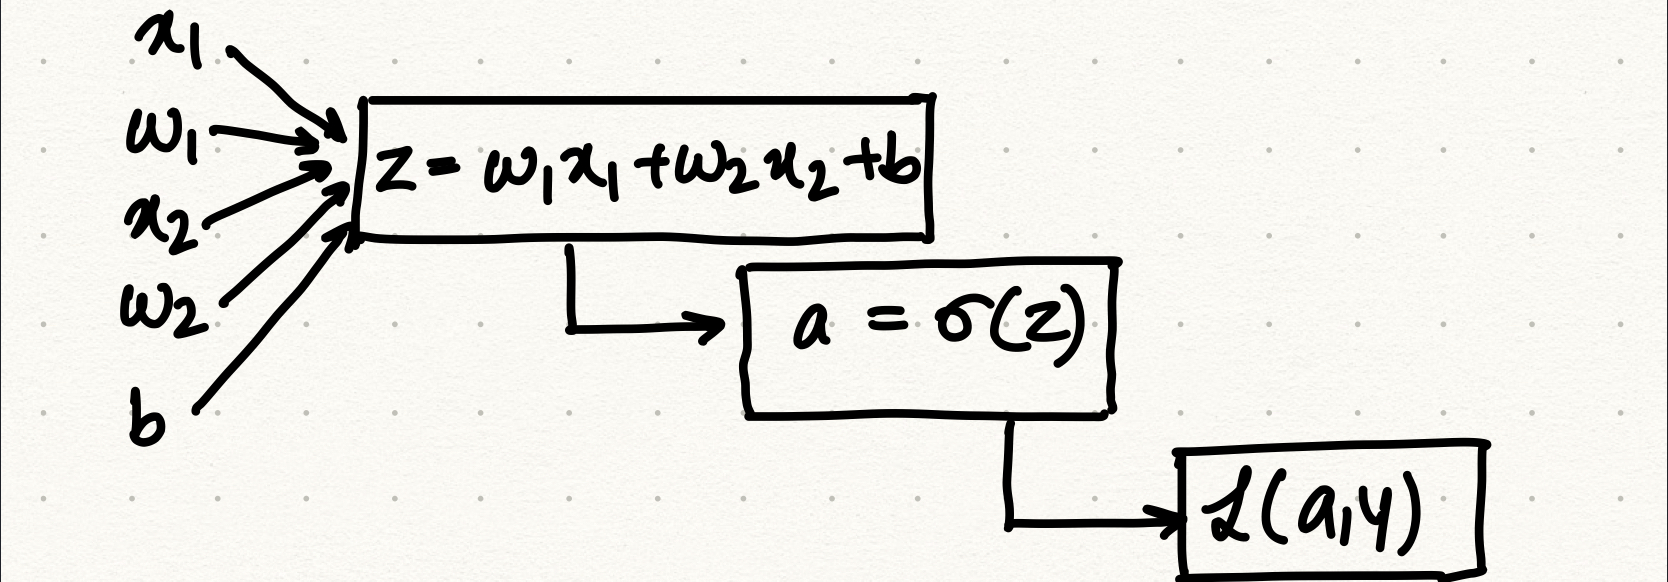 x₁
w₁
x₂
w₂
b
z = w₁x₁+w₂x₂+b
a = σ(z)
ℒ(a,y)